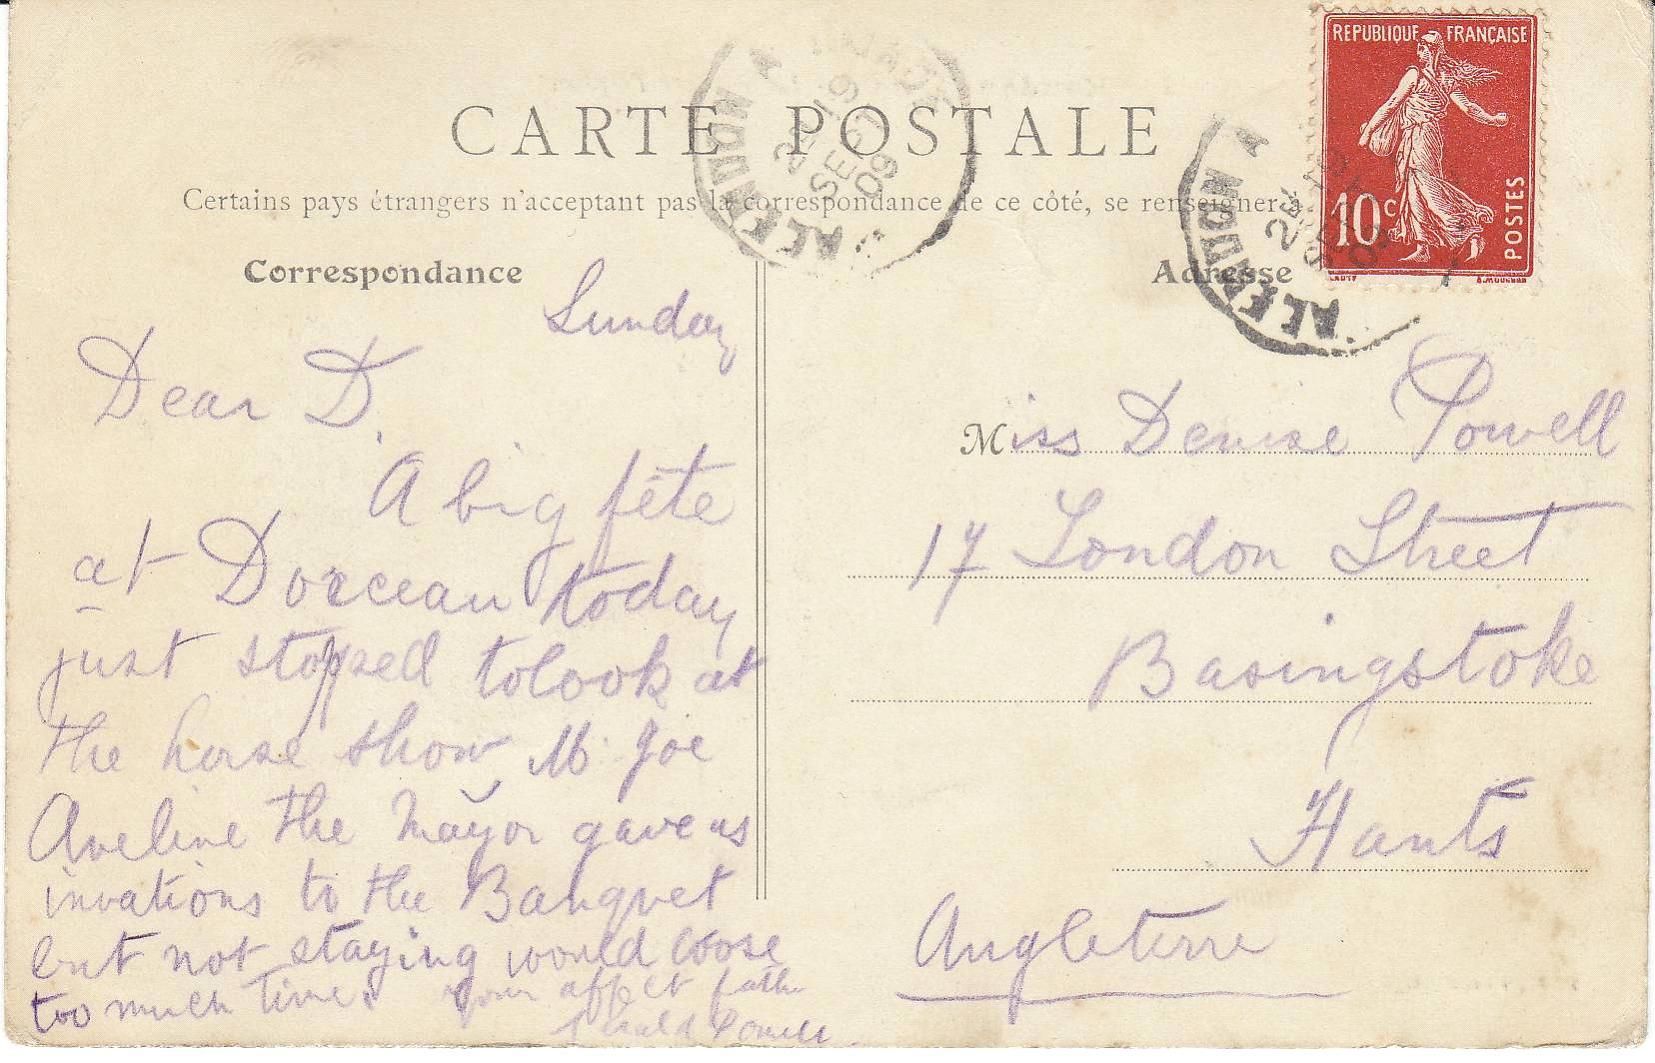 REPUBLIQUE FRANÇAISE
10c
POSTES
CARTE POSTALE
ALENÇON A
19
SEPT
09
Certains pays étrangers n'acceptant pas la correspondance de ce côté, se renseigner à
Correspondance
Adresse
ALENÇON A
Sunday
Dear D.
A big fête
at Dorceau today
just stopped to look at
the horse show M. Joe
Aveline the Mayor gave us
invations to the Banquet
but not staying would loose
too much time. your affect father
Powell
Miss Denise Powell
17 London Street
Basingstoke
Hants
Angleterre